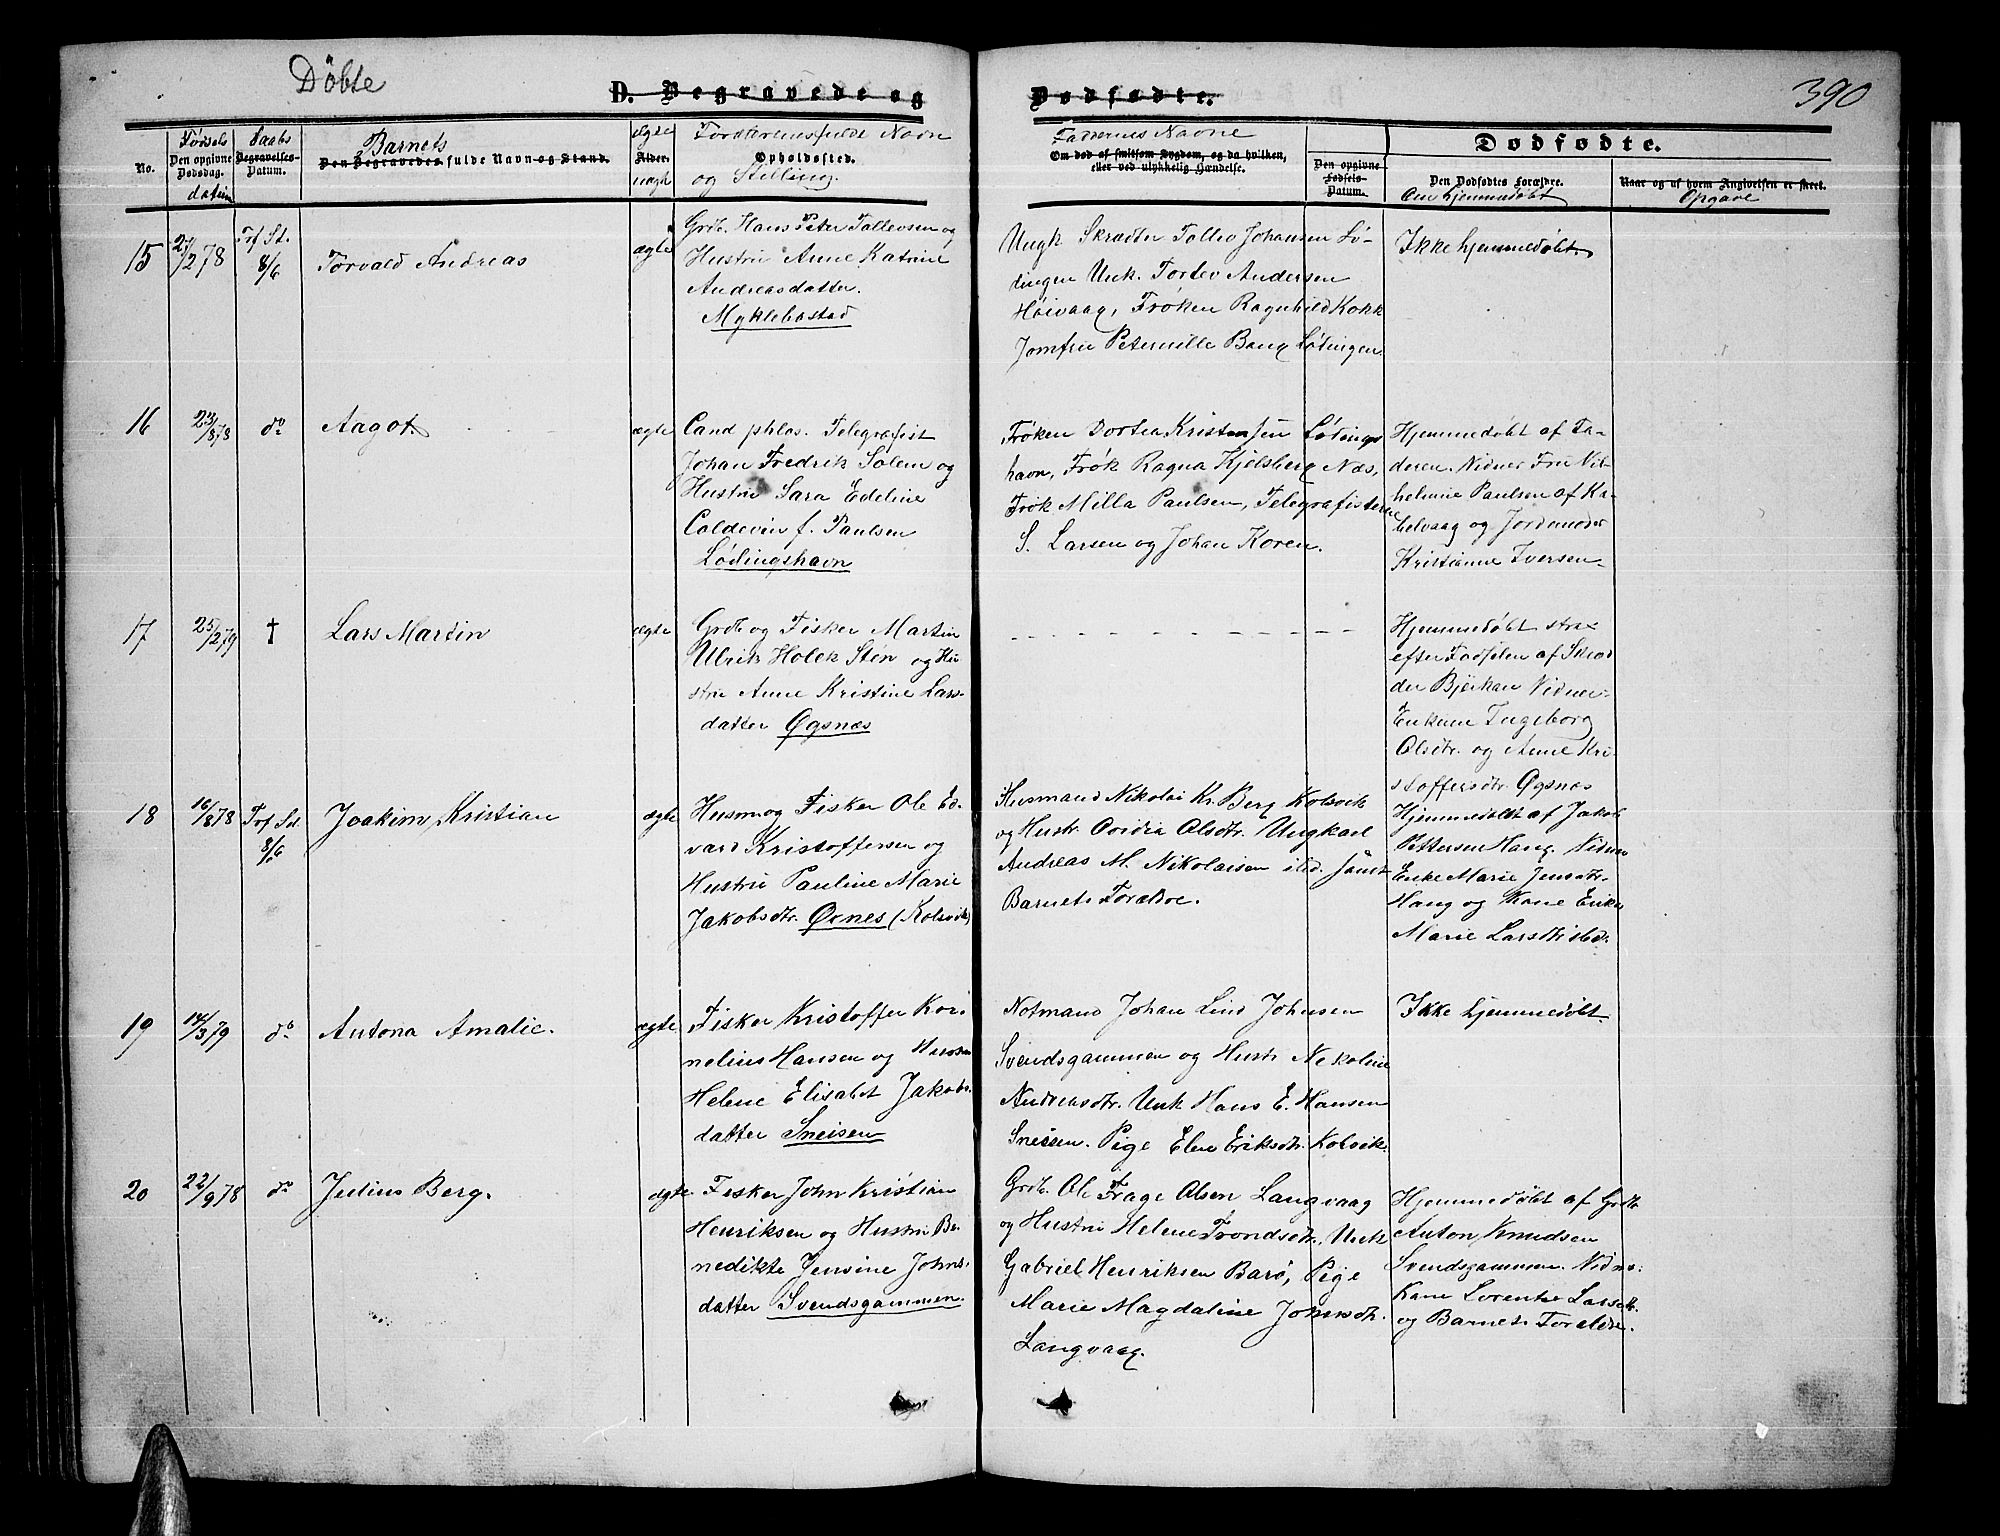 Döbte
D. Begravede og
Dødfødte.
390
No.
Førsels
Den opgivne
Dødsdag.
datum
Daabs
Begravelses-
Datum.
Barnets
Den Begravedes fulde Navn og Stand.
ægte
Alder.
uægte
Forældrenes fulde Navn
Opholdssted.
og Stilling.
Faddernes Navne
Om død af smitsom Sygdom, og da hvilken,
eller ved ulykkelig Hændelse.
Den opgivne
Fødsels-
Datum.
Dødfødte.
Den Dødfødtes Forældre.
Om hjemmedøbt
Naar og af hvem Angivelsen er skeet.
Opgave
15
27/2 78
Trf St.
8/6
Torvald Andreas
ægte
Grdb. Hans Peter Tollevsen og
Hustru Anne Katrine
Andreasdatter.
Myklebostad
Ungk Skrædder Tollev Johansen Lø-
dingen Unk. Tortev Andersen
Høivaag, Frøken Ragnhild Kokk
Jomfru Peternille Bang Lødingen
Ikke hjemmedøbt
16
23/8 78
do
Aagot.
ægte
Cand philos. Telegrafist
Johan Fredrik Solem og
Hustru Sara Edeline
Coldevin f. Paulsen
Lødingshavn
Frøken Dortea Kristensen Lødings
havn, Frøk Ragna Kjelsberg Næs,
Frøk Milla Paulsen, Telegrafisterne
S. Larsen og Johan Koren.
Hjemmedøbt af Fa-
deren. Vidner Fru Vil-
helmine Paulsen af Ka-
belvaag og Jordmoder
Kristianne Iversen
17
25/2 79
†
Lars Martin
ægte
Grdb og Fisker Martin
Ulrik Holck Stên og Hu-
stru Anne Kristine Lars-
datter Øgsnæs
Hjemmedøbt strax
efter Fødselen af Skræd
der Bjerkan Vidner
Enkene Ingeborg
Olsdtr. og Anne Kri-
stoffersdtr. Øgsnæs
18
16/8 78
Trf St.
8/6
Joakim Kristian
ægte
Husm og Fisker Ole Ed-
vard Kristoffersen og
Hustru Pauline Marie
Jakobsdtr. Ørnes (Kolsvik)
Husmand Nikolai Kr. Berg Kolsvik
og Hustr. Ovidia Olsdtr. Ungkarl
Andreas M. Nikolaisen ibd. samt
Barnets Forældre.
Hjemmedøbt af Jakob
Pettersen Haug. Vidner
Enke Marie Jensdtr.
Haug og Kone Erika
Marie Larsdtr ibd.
19
14/3 79
do
Antona Amalie.
ægte
Fisker Kristoffer Kor-
nelius Hansen og Hustru
Helene Elisabet Jakobs-
datter Sneisen
Notmand Johan Lind Johnsen
Svendsgammen og Hustr Nekoline
Andreasdtr. Unk Hans E. Hansen
Sneisen. Pige Elen Eriksdtr. Kolsvik.
Ikke hjemmedøbt
20
22/9 78
do
Julius Berg.
ægte
Fisker John Kristian
Henriksen og Hustru Be-
nedikte Jensine Johns-
datter Svendsgammen.
Grdb. Ole Frage Olsen Langvaag
og Hustru Helene Trondsdtr. Unk
Gabriel Henriksen Barø, Pige
Marie Magdaline Johnsdtr.
Langvaag.
Hjemmedøbt af Grdb
Anton Knudsen
Svendsgammen. Vidner
Kone Lorentse Larsdtr.
og Barnets Forældre.